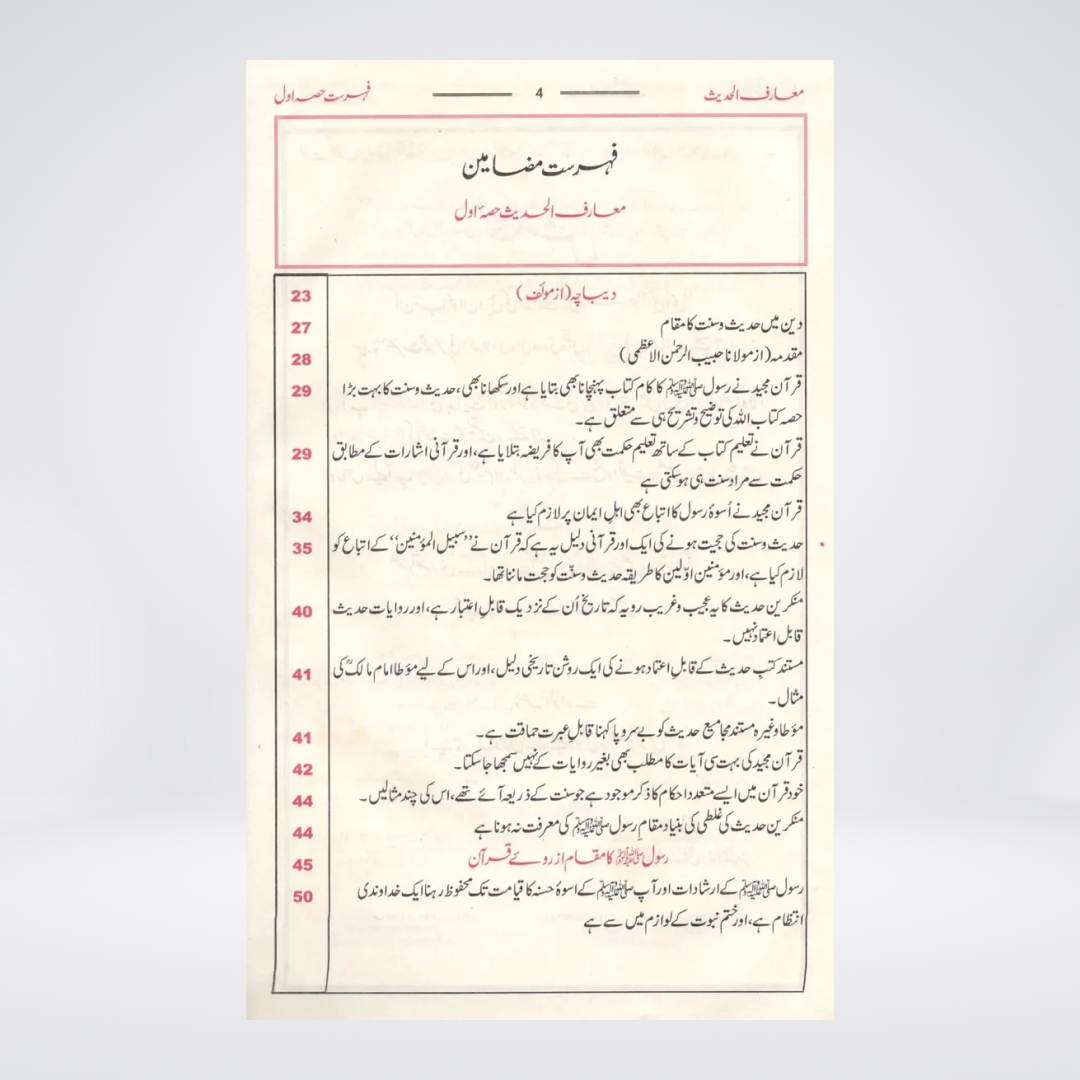 معارف الحدیث 4 فہرست حصہ اول
فہرست مضامین
معارف الحدیث حصۂ اول
دیباچہ (از مولف) 23
دین میں حدیث وسنت کا مقام 27
مقدمہ (از مولانا حبیب الرحمٰن الاعظمی) 28
قرآن مجید نے رسول ﷺ کا کام کتاب پہنچانا بھی بتایا ہے اور سکھانا بھی، حدیث وسنت کا بہت بڑا 29
حصہ کتاب اللہ کی توضیح وتشریح ہی سے متعلق ہے۔
قرآن نے تعلیم کتاب کے ساتھ تعلیم حکمت بھی آپ کا فریضہ بتلایا ہے، اور قرآنی اشارات کے مطابق 29
حکمت سے مراد سنت ہی ہو سکتی ہے
قرآن مجید نے اُسوۂ رسول کا اتباع بھی اہلِ ایمان پر لازم کیا ہے 34
حدیث وسنت کی حجیت ہونے کی ایک اور قرآنی دلیل یہ ہے کہ قرآن نے ”سبیل المؤمنین“ کے اتباع کو 35
لازم کیا ہے، اور مؤمنین اوّلین کا طریقہ حدیث وسنّت کو حجت ماننا تھا۔
منکرین حدیث کا یہ عجیب وغریب رویہ کہ تاریخ اُن کے نزدیک قابلِ اعتبار ہے، اور روایات حدیث 40
قابل اعتماد نہیں۔
مستند کتبِ حدیث کے قابلِ اعتماد ہونے کی ایک روشن تاریخی دلیل، اور اس کے لیے مؤطا امام مالکؒ کی 41
مثال۔
مؤطا وغیرہ مستند مجامیع حدیث کو بے سروپا کہنا قابلِ عبرت حماقت ہے۔ 41
قرآن مجید کی بہت سی آیات کا مطلب بھی بغیر روایات کے نہیں سمجھا جا سکتا۔ 42
خود قرآن میں ایسے متعدد احکام کا ذکر موجود ہے جو سنت کے ذریعہ آئے تھے، اس کی چند مثالیں۔ 44
منکرین حدیث کی غلطی کی بنیاد مقامِ رسول ﷺ کی معرفت نہ ہونا ہے 44
رسول ﷺ کا مقام از روئے قرآن 45
رسول ﷺ کے ارشادات اور آپ ﷺ کے اسوۂ حسنہ کا قیامت تک محفوظ رہنا ایک خداوندی 50
انتظام ہے، اور ختم نبوت کے لوازم میں سے ہے